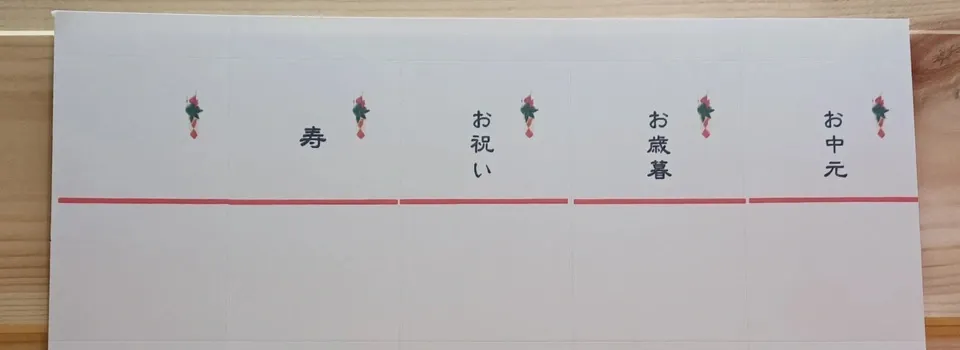 お中元
お歳暮
お祝い
寿